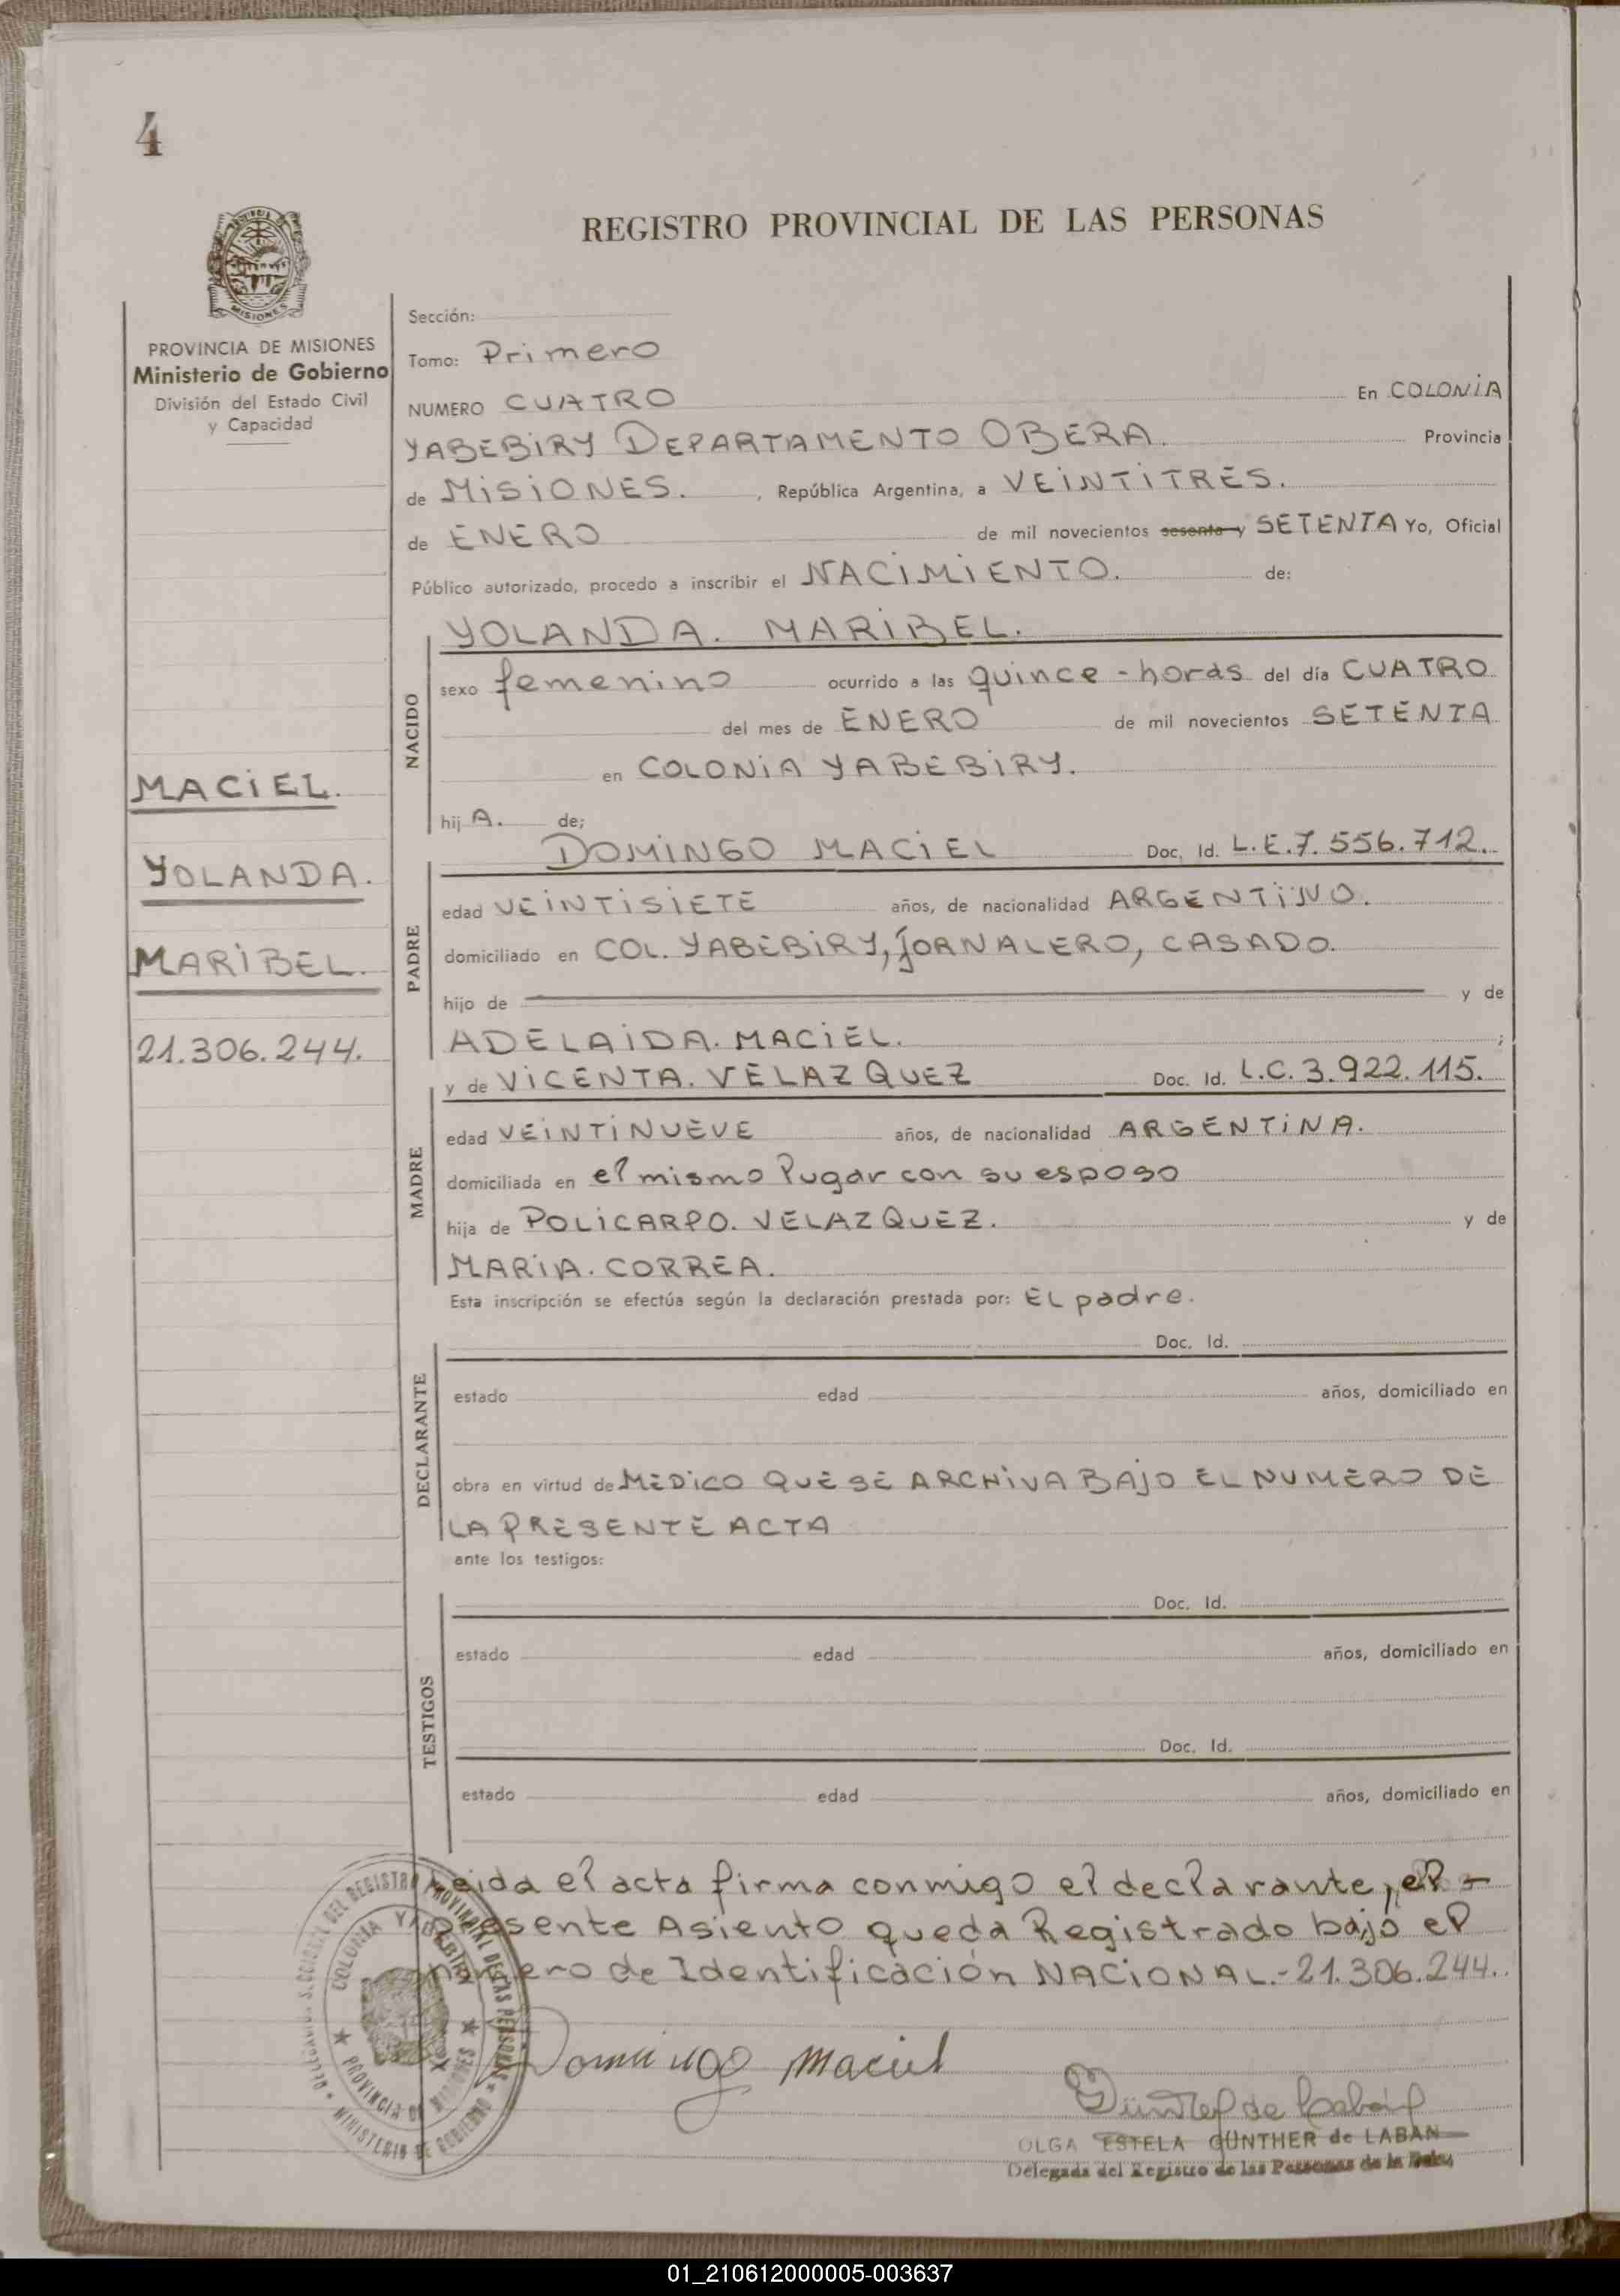 4
REGISTRO PROVINCIAL DE LAS PERSONAS
MISIONES
PROVINCIA DE MISIONES
Ministerio de Gobierno
División del Estado Civil
y Capacidad
MACIEL.
YOLANDA.
MARIBEL.
21.306.244.
Sección:
Tomo: Primero
NUMERO CUATRO En COLONIA
YABEBIRY DEPARTAMENTO OBERA. Provincia
de MISIONES. , República Argentina, a VEINTITRES.
de ENERO de mil novecientos sesenta y SETENTA Yo, Oficial
Público autorizado, procedo a inscribir el NACIMIENTO. de:
NACIDO
YOLANDA. MARIBEL.
sexo femenino ocurrido a las quince - horas del día CUATRO
del mes de ENERO de mil novecientos SETENTA
en COLONIA YABEBIRY.
hij A. de;
PADRE
DOMINGO MACIEL Doc. Id. L.E.7.556.712.
edad VEINTISIETE años, de nacionalidad ARGENTINO.
domiciliado en COL. YABEBIRY, JORNALERO, CASADO.
hijo de y de
ADELAIDA. MACIEL. ;
MADRE
y de VICENTA. VELAZQUEZ Doc. Id. L.C. 3.922.115.
edad VEINTINUEVE años, de nacionalidad ARGENTINA.
domiciliada en el mismo lugar con su esposo
hija de POLICARPO. VELAZQUEZ. y de
MARIA. CORREA.
Esta inscripción se efectúa según la declaración prestada por: EL padre.
DECLARANTE
Doc. Id.
estado edad años, domiciliado en
obra en virtud de MEDICO QUE SE ARCHIVA BAJO EL NUMERO DE
LA PRESENTE ACTA
ante los testigos:
TESTIGOS
Doc. Id.
estado edad años, domiciliado en
Doc. Id.
estado edad años, domiciliado en
Leida el acta firma conmigo el declarante, el -
presente Asiento queda Registrado bajo el
número de Identificación NACIONAL.-21.306.244..
DEL REGISTRO PROVINCIAL DE LAS PERSONAS
COLONIA YABEBIRY
PROVINCIA DE MISIONES
MINISTERIO DE GOBIERNO
Domingo Maciel
Günther de Labán
OLGA ESTELA GUNTHER de LABAN
Delegada del Registro de las Personas de la
01_210612000005-003637